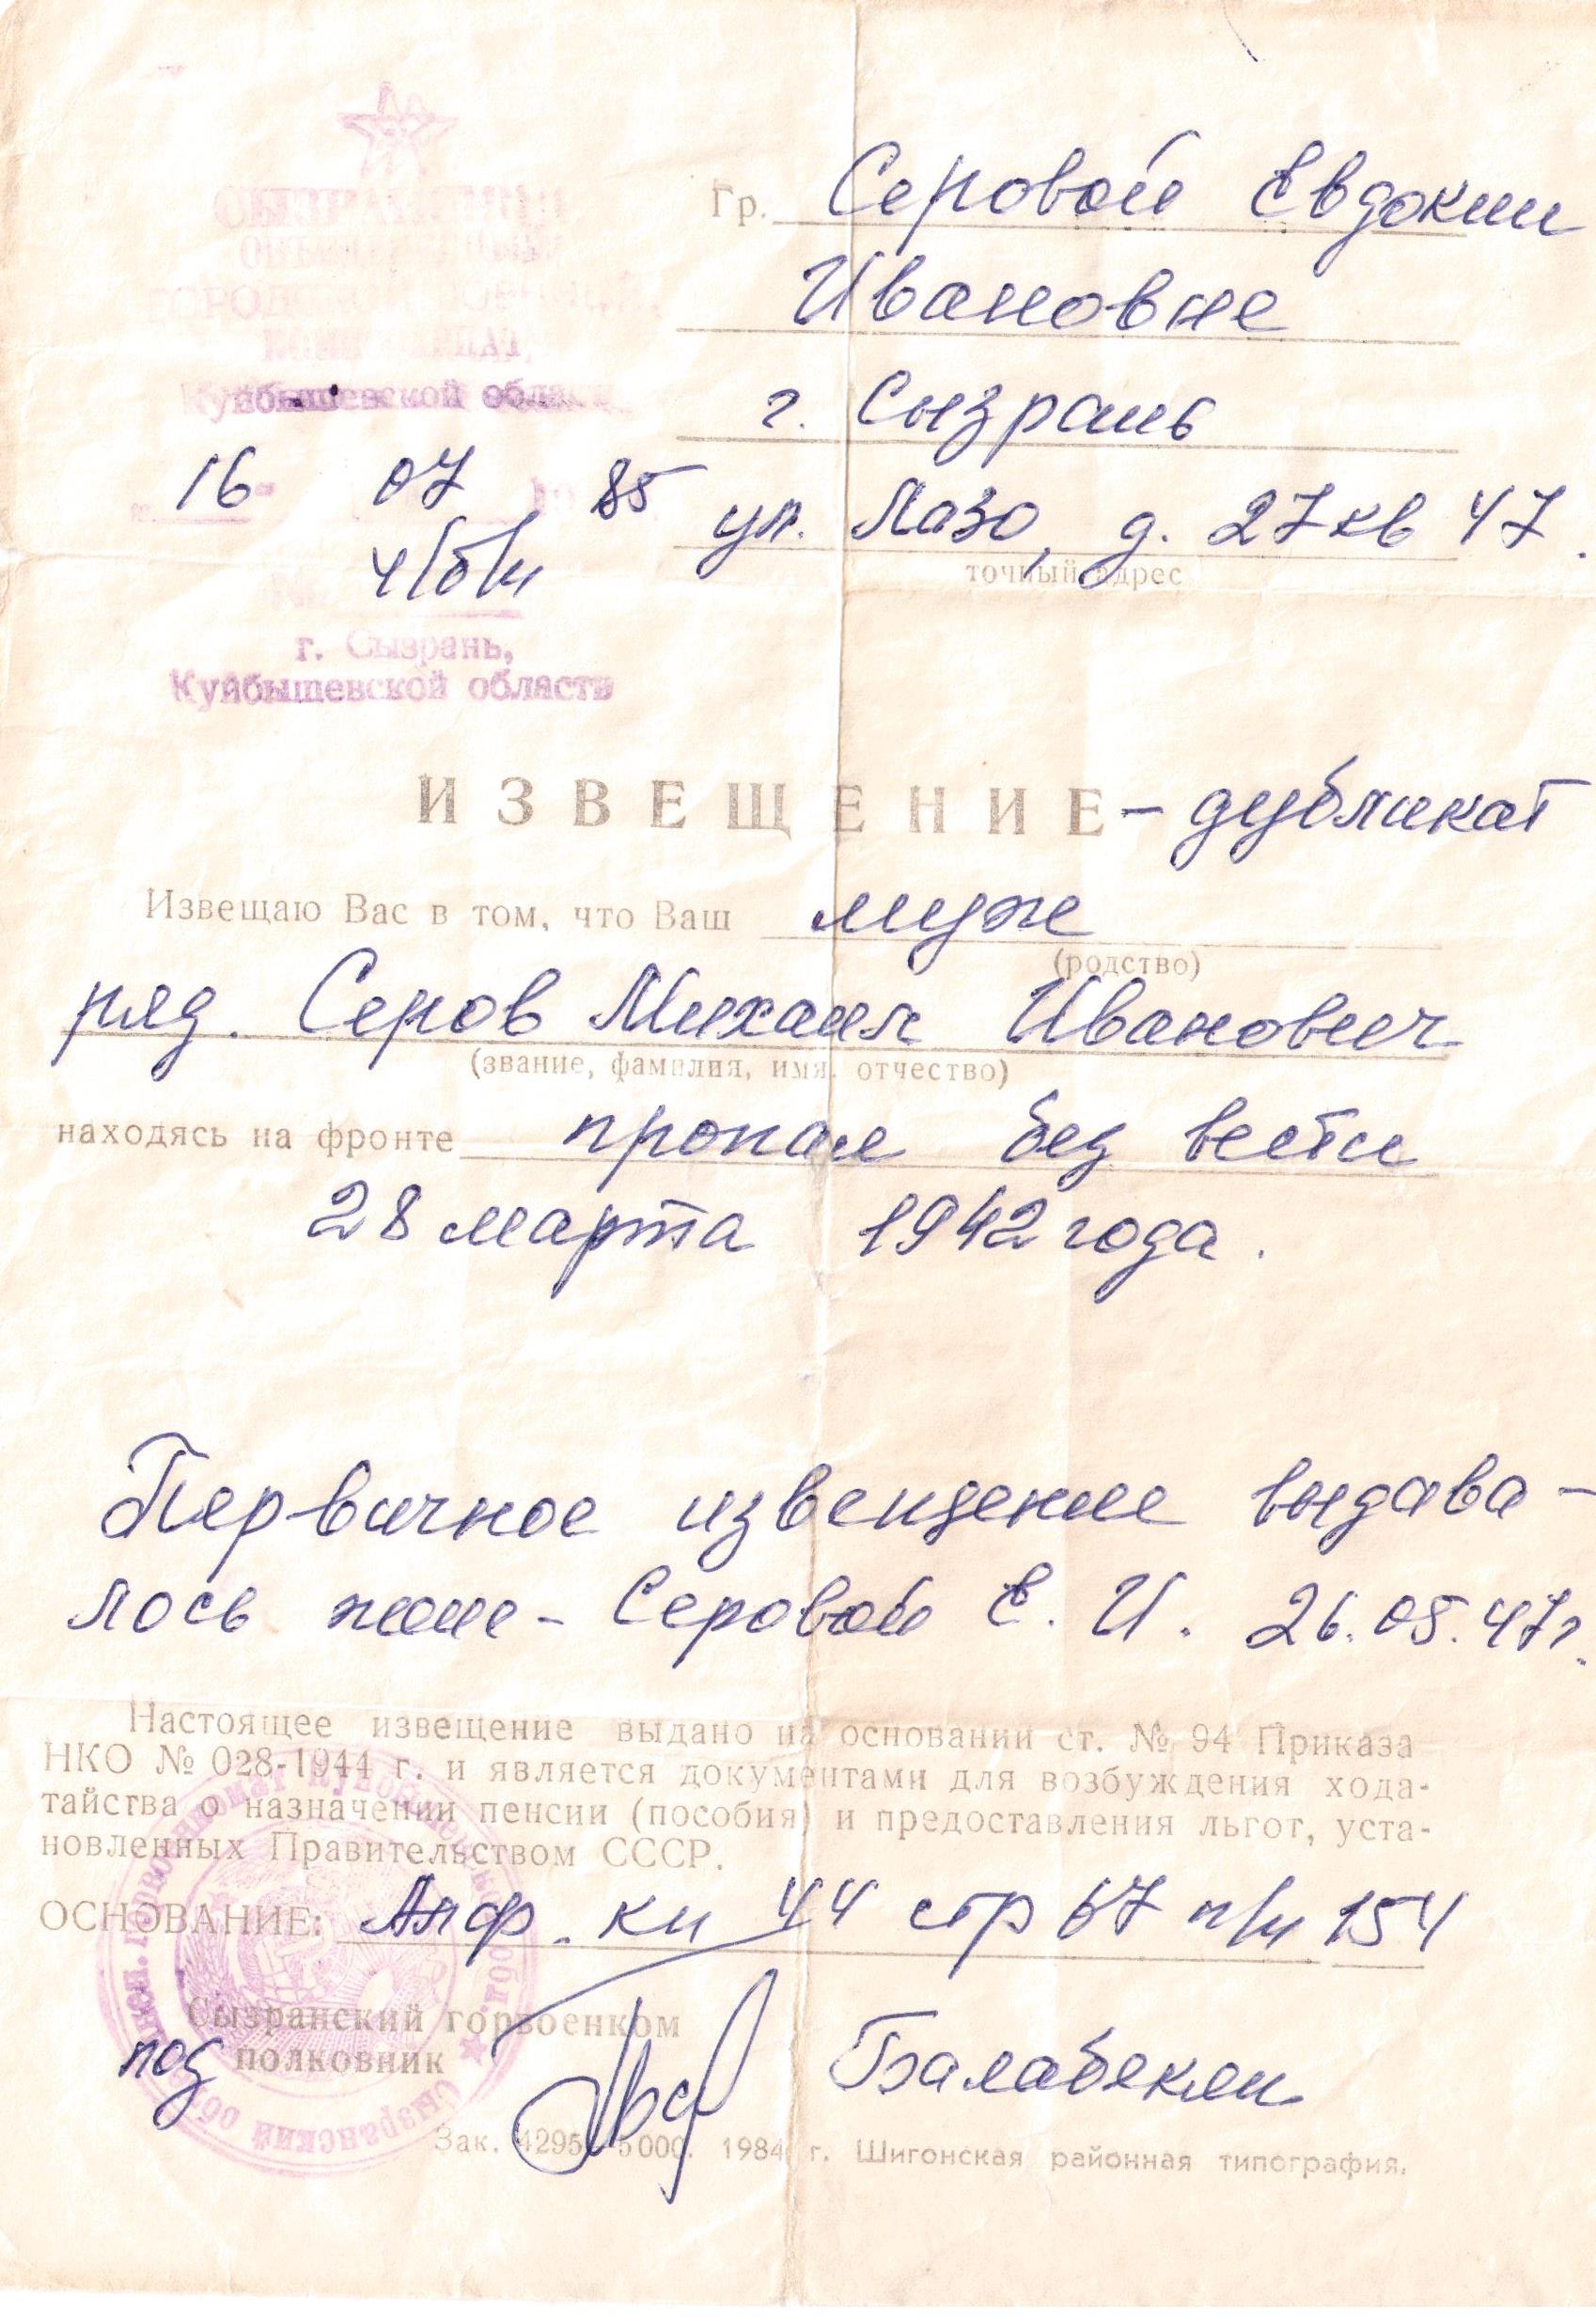 Куйбышевской области
16 07 85
ч/б/н
г. Сызрань,
Куйбышевской области
Гр. Серовой Евдокии
Ивановне
г. Сызрань
ул. Лазо, д. 27 кв 47.
точный адрес
ИЗВЕЩЕНИЕ - дубликат
Извещаю Вас в том, что Ваш муж
(родство)
ряд. Серов Михаил Иванович
(звание, фамилия, имя, отчество)
находясь на фронте пропал без вести
28 марта 1942 года.
Первичное извещение выдава-
лось жене - Серовой Е. И. 26.05.47г.
Настоящее извещение выдано на основании ст. № 94 Приказа
НКО № 028-1944 г. и является документами для возбуждения хода-
тайства о назначении пенсии (пособия) и предоставления льгот, уста-
новленных Правительством СССР.
ОСНОВАНИЕ: Алф. кн 44 стр 67 п/н 154
Сызранский горвоенком
под полковник Балабекян
Зак. 4295 5000. 1984 г. Шигонская районная типография.